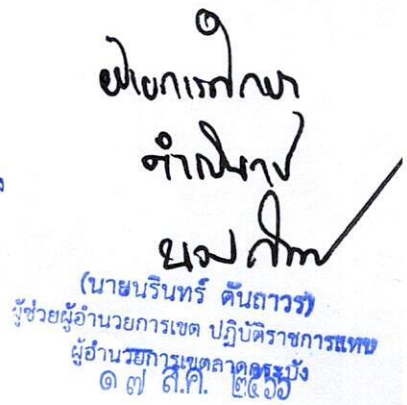 ฝ่ายการศึกษา
ดำเนินการ
(นายนรินทร์ ตันถาวร)
ผู้ช่วยผู้อำนวยการเขต ปฏิบัติราชการแทน
ผู้อำนวยการเขตลาดกระบัง
๑๗ ส.ค. ๒๕๖๖